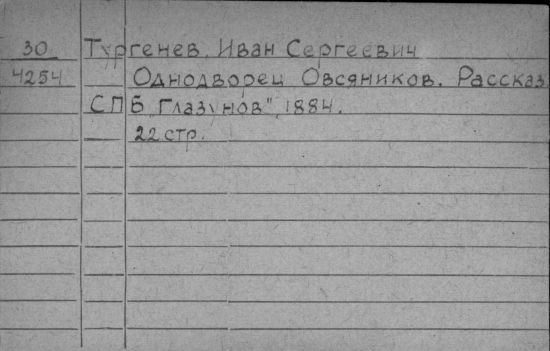 30 Тургенев, Иван Сергеевич
4254 Однодворец Овсяников. Рассказ
СПБ „Глазунов", 1884.
22 стр.